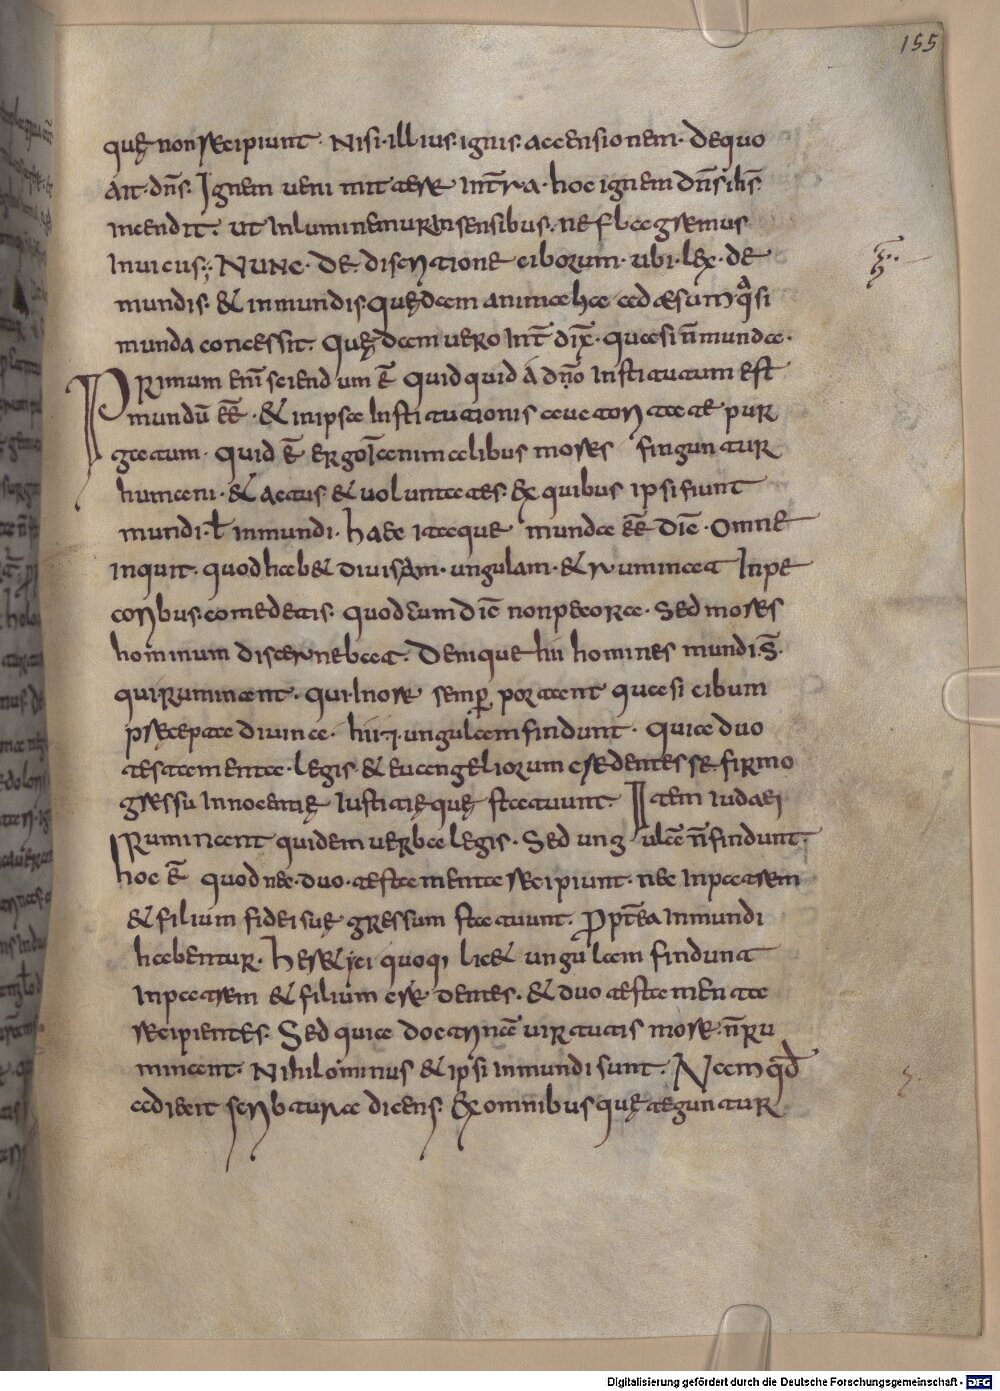 155
quę non recipiunt · Nisi · illius · ignis · accensionem · De quo
ait · dn̄s · Ignem ueni mittere In t̄rra · hoc ignem dn̄s ih̄s
incendit · ut Inluminemur In sensibus · ne fl aegremus
In uicus ; Nunc · De · discrjtione ciborum · ubi · lex · de
mundis · & inmundis · quędam animalia ad aesum q̄si
munda concessit · Quędam uero Int̄ dix̄ · quasi īn munda ·
Primum enī sciendum ē Quid quid a dn̄o Institutum est
mundū eē · & in ipsa Institutionis auctoritate pur
gatum · Quid ē ergo In animalibus mores finguntur
humani · & actus & uoluntates · Ex quibus ipsi fiunt
mundi · ł inmundi · haec itaque munda eē diē · Omne
inquit · quod hab& diuisam · ungulam · & ruminat In pe
coribus · comedetis · quod cum diē non pecora · Sed mores
hominum discernebat · Denique hii homines mundi · s̄
qui ruminant · qui · In ore semp̄ portant quasi cibum
precepta diuina · hii · ÷ · ungulam findunt · Quia duo
testamenta · legis · & euangeliorum credentes se firmo
gressu Innocentię Iustitięquę statuunt · Item Iudaei
Ruminant quidem uerba legis · Sed ungulā n̄ findunt ·
hoc ē quod nec · duo · testamenta recipiunt · nec In patrem
& filium fidei suę gressum statuunt · P̄pt̄ea Inmundi
habentur · Heretici quoq; lic& ungulam findunt
In patrem & filium credentes · & duo testamenta
recipientes · Sed quia doctrinā uirtutis more · n̄ ru
minant · Nihilominus & ipsi inmundi sunt · Nam q̄d
adiecit scribtura dicens · Ex omnibus quę teguntur
Digitalisierung gefördert durch die Deutsche Forschungsgemeinschaft - DFG